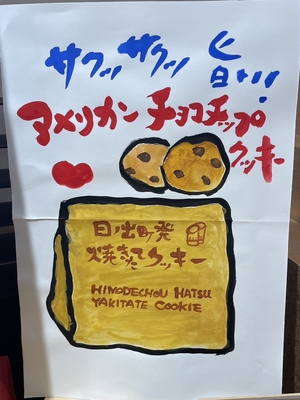 サクッサクッ
アメリカンチョコチップ
クッキー
日ノ出町発
焼きたてクッキー
HINODECHOU HATSU
YAKITATE COOKIE